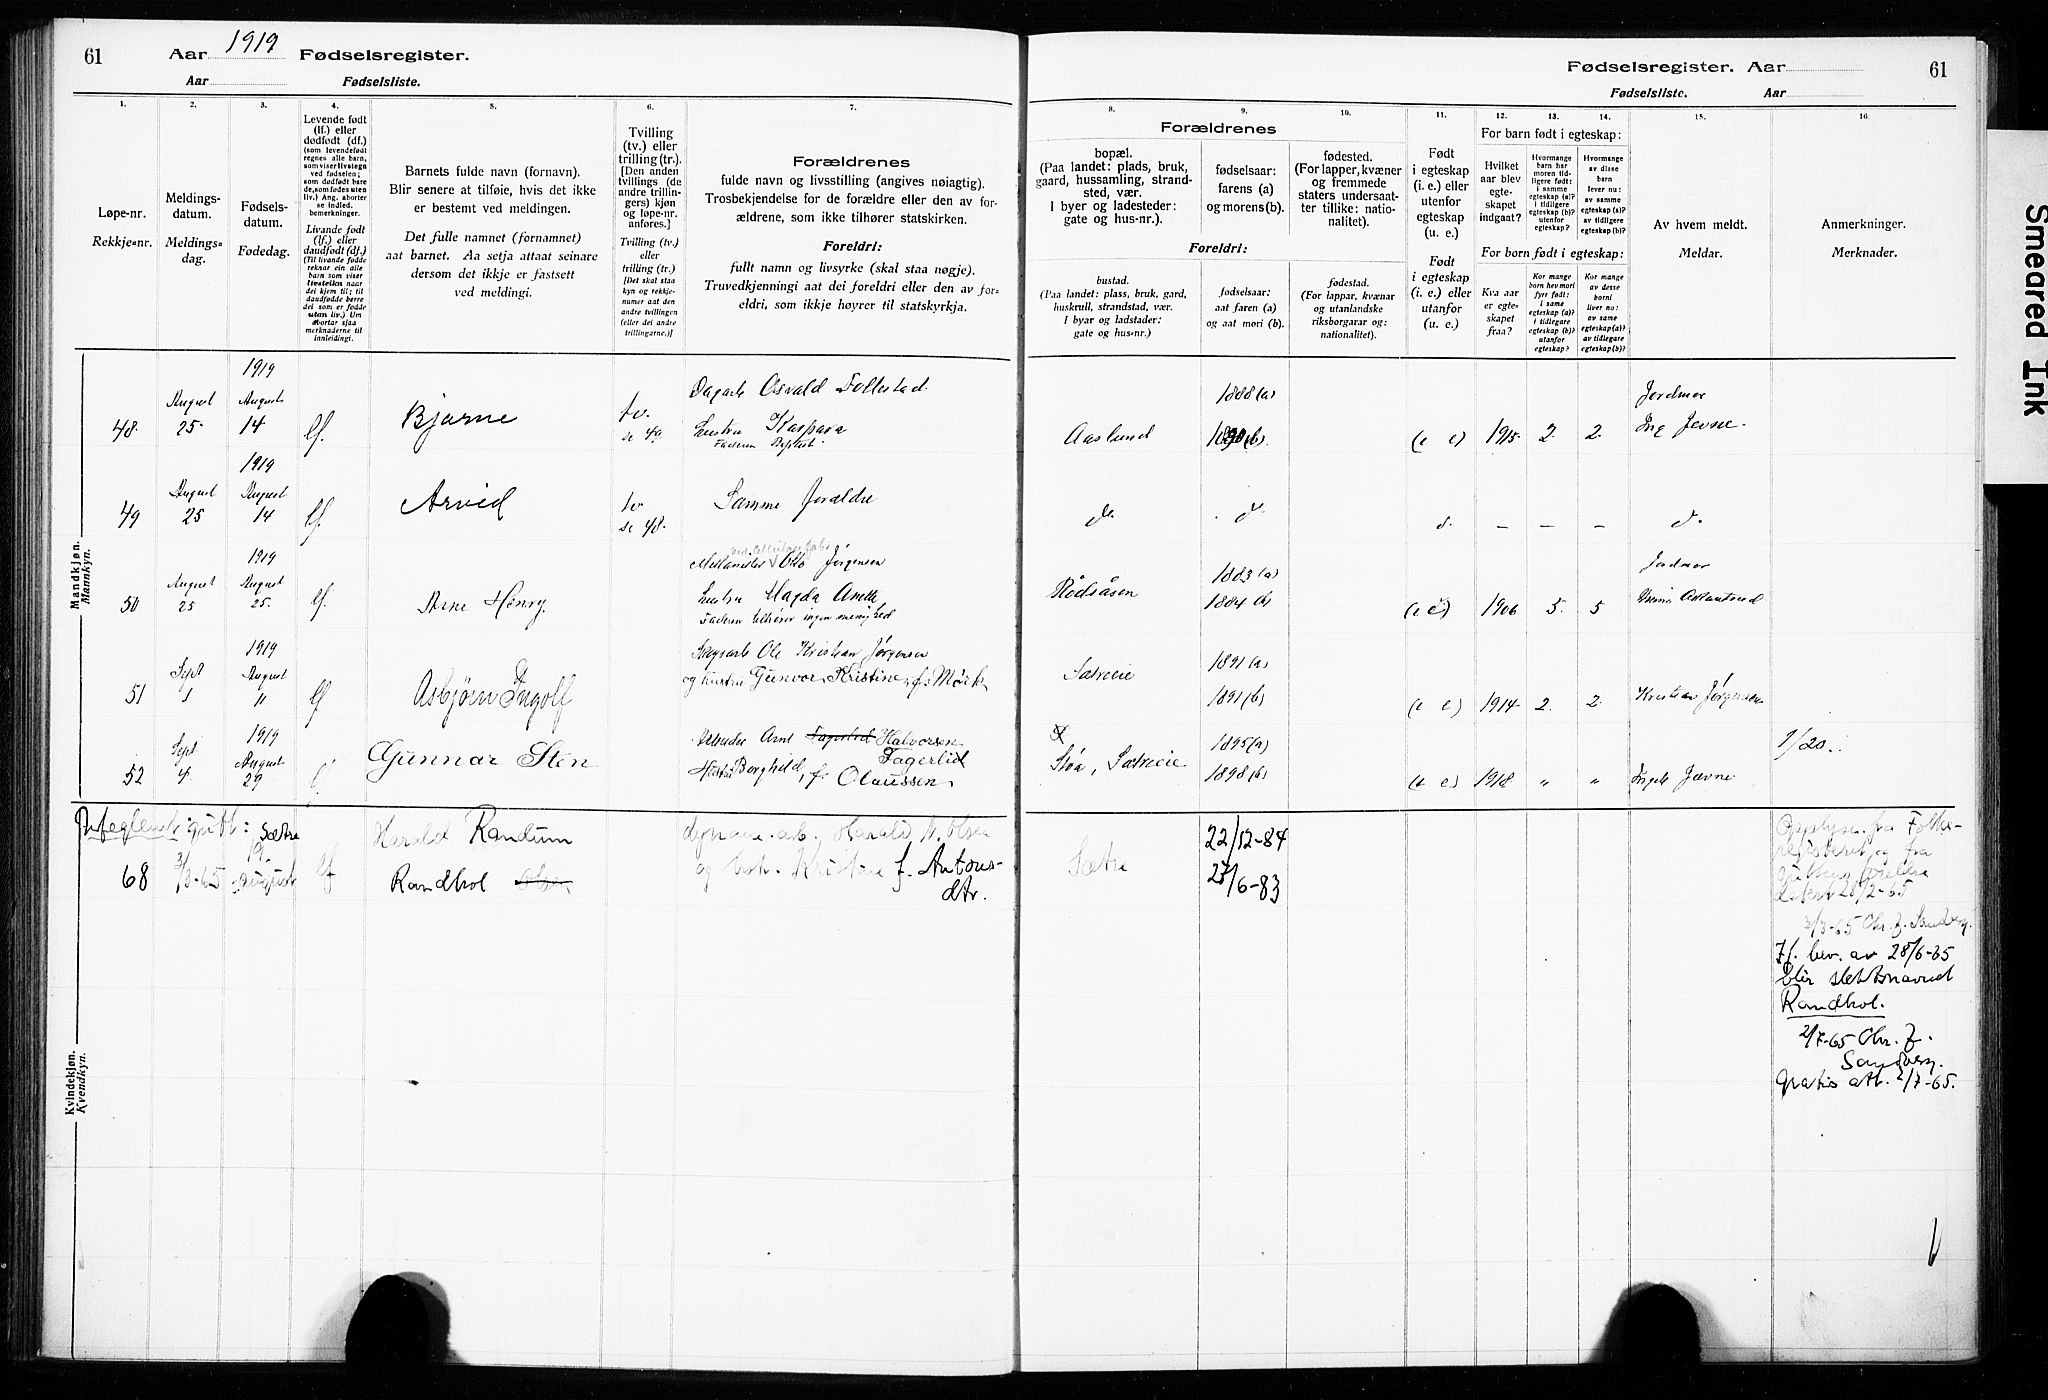 61
Aar 1919 Fødselsregister.
Aar Fødselsliste.
Fødselsregister. Aar
61
Fødselsliste. Aar
1.
2.
3.
4.
5.
6.
7.
8.
9.
10.
11.
12.
13.
14.
15.
16.
Løpe-nr.
Rekkje-nr.
Meldings-
datum.
Meldings-
dag.
Fødsels-
datum.
Fødedag.
Levende født
(lf.) eller
dødfødt (df.)
(som levendefødt
regnes alle barn,
som viser livstegn
ved fødselen;
som dødfødt bare
de, som fødes uten
liv.) Ang. aborter
se indled.
bemerkninger.
Livande født
(lf.) eller
daudfødt (df.)
(Til livande fødde
reknar ein alle
barn som viser
livsteikn naar
dei kjem til; til
daudfødde berre
dei som er fødde
utan liv.) Um
abortar sjaa
merknaderne til
innleidingi.
Barnets fulde navn (fornavn).
Blir senere at tilføie, hvis det ikke
er bestemt ved meldingen.
Det fulle namnet (fornamnet)
aat barnet. Aa setja attaat seinare
dersom det ikkje er fastsett
ved meldingi.
Tvilling
(tv.) eller
trilling (tr.).
[Den anden
tvillings (de
andre trillin-
gers) kjøn
og løpe-nr.
anføres.]
Tvilling (tv.)
eller
trilling (tr.)
[Det skal staa
kyn og rekkje-
numer aat den
andre tvillingen
(eller dei andre
trillingarne.)]
Forældrenes
fulde navn og livsstilling (angives nøiagtig).
Trosbekjendelse for de forældre eller den av for-
ældrene, som ikke tilhører statskirken.
Foreldri:
fullt namn og livsyrke (skal staa nøgje).
Truvedkjenningi aat dei foreldri eller den av for-
eldri, som ikkje høyrer til statskyrkja.
Forældrenes
bopæl.
(Paa landet: plads, bruk,
gaard, hussamling, strand-
sted, vær.
I byer og ladesteder:
gate og hus-nr.).
fødselsaar:
farens (a)
og morens (b).
fødested.
(For lapper, kvæner
og fremmede
staters undersaat-
ter tillike: natio-
nalitet).
Foreldri:
bustad.
(Paa landet: plass, bruk, gard,
huskrull, strandstad, vær.
I byar og ladstader:
gate og hus-nr.)
fødselsaar:
aat faren (a)
og aat mori (b).
fødestad.
(For lappar, kvænar
og utanlandske
riksborgarar og:
nationalitet).
Født
i egteskap
(i. e.) eller
utenfor
egteskap
(u. e.)
Født
i egteskap
(i. e.) eller
utanfor
(u. e.)
For barn født i egteskap:
Hvilket
aar blev
egte-
skapet
indgaat?
Hvormange
barn har
moren tid-
ligere født:
i samme
egteskap (a)?
i tidligere
egteskap (b)?
utenfor
egteskap?
Hvormange
av disse
barn
lever nu:
av samme
egteskap (a)?
av tidligere
egteskap (b)?
For born født i egteskap:
Kva aar
er egte-
skapet
fraa?
Kor mange
born hev mori
fyrr født:
i same
egteskap (a)?
i tidlegare
egteskap (b)?
utanfor
egteskap?
Kor mange
av desse
borni
liver no:
av same
egteskap (a)?
av tidlegare
egteskap (b)?
Av hvem meldt.
Meldar.
Anmerkninger.
Merknader.
Mandkjøn.
Mannkyn.
48.
August
25.
1919
August
14
lf.
Bjarne
tv.
se 49.
Dagarb. Osvald Follestad.
hustru Kaspara
Faderen Baptist.
Aaslund
1888 (a)
(b).
(i e)
1915.
2.
2.
Jordmor
Ing Jevne.
49
August
25
1919
August
14
lf.
Arvid
tv.
se 48.
Samme forældre
do.
do.
d.
–
–
–
d.
50
August
25
1919
August
25.
lf.
Arne Henry
Mekaniker Otto Jørgensen
hustru Magda Anette
Faderen tilhører ingen menighed
Rødsåsen
1883 (a)
1884 (b)
(i e)
1906
5.
5
Jordmor
51
Sept
1
1919
August
11
lf
Asbjørn Ingolf
Ole Kristian Jørgensen
og hustru Gunvor Kristine, f. Mørk.
Sætreeie
1891 (a)
1891 (b)
(i e)
1914.
2.
2.
Kristian Jørgensen
52
Sept
4.
1919
August
29
lf
Gunnar Sten
Arbeider Arnt Fagerlid Halvorsen
Fagerlid
Hustru Borghild, f. Olaussen.
Støa, Sætreeie
1895 (a)
1898 (b)
(i e)
1918
"
"
Ingeb Jævne
1/20.
Uteglemt: gutt: Sætre
68
3/3-65
19.
august
lf
Harald Randum
Randhol Olsen
dynam. arb. Harald N. Olsen
og hustr. Kristine f. Antons-
dtr.
Sætre
22/12-84
23/6-83
Opplysn. fra Folke-
registeret og fra
guttens foreldre
datert 28/2-65
3/3-65 Chr. Z. Sandberg.
Jf. bev. av 28/6-65
blir slektsnavnet
Randhol.
2/7-65 Chr. Z.
Sandberg.
Gratis att. 2/7-65.
Kvindekjøn.
Kvendkyn.
Smeared Ink